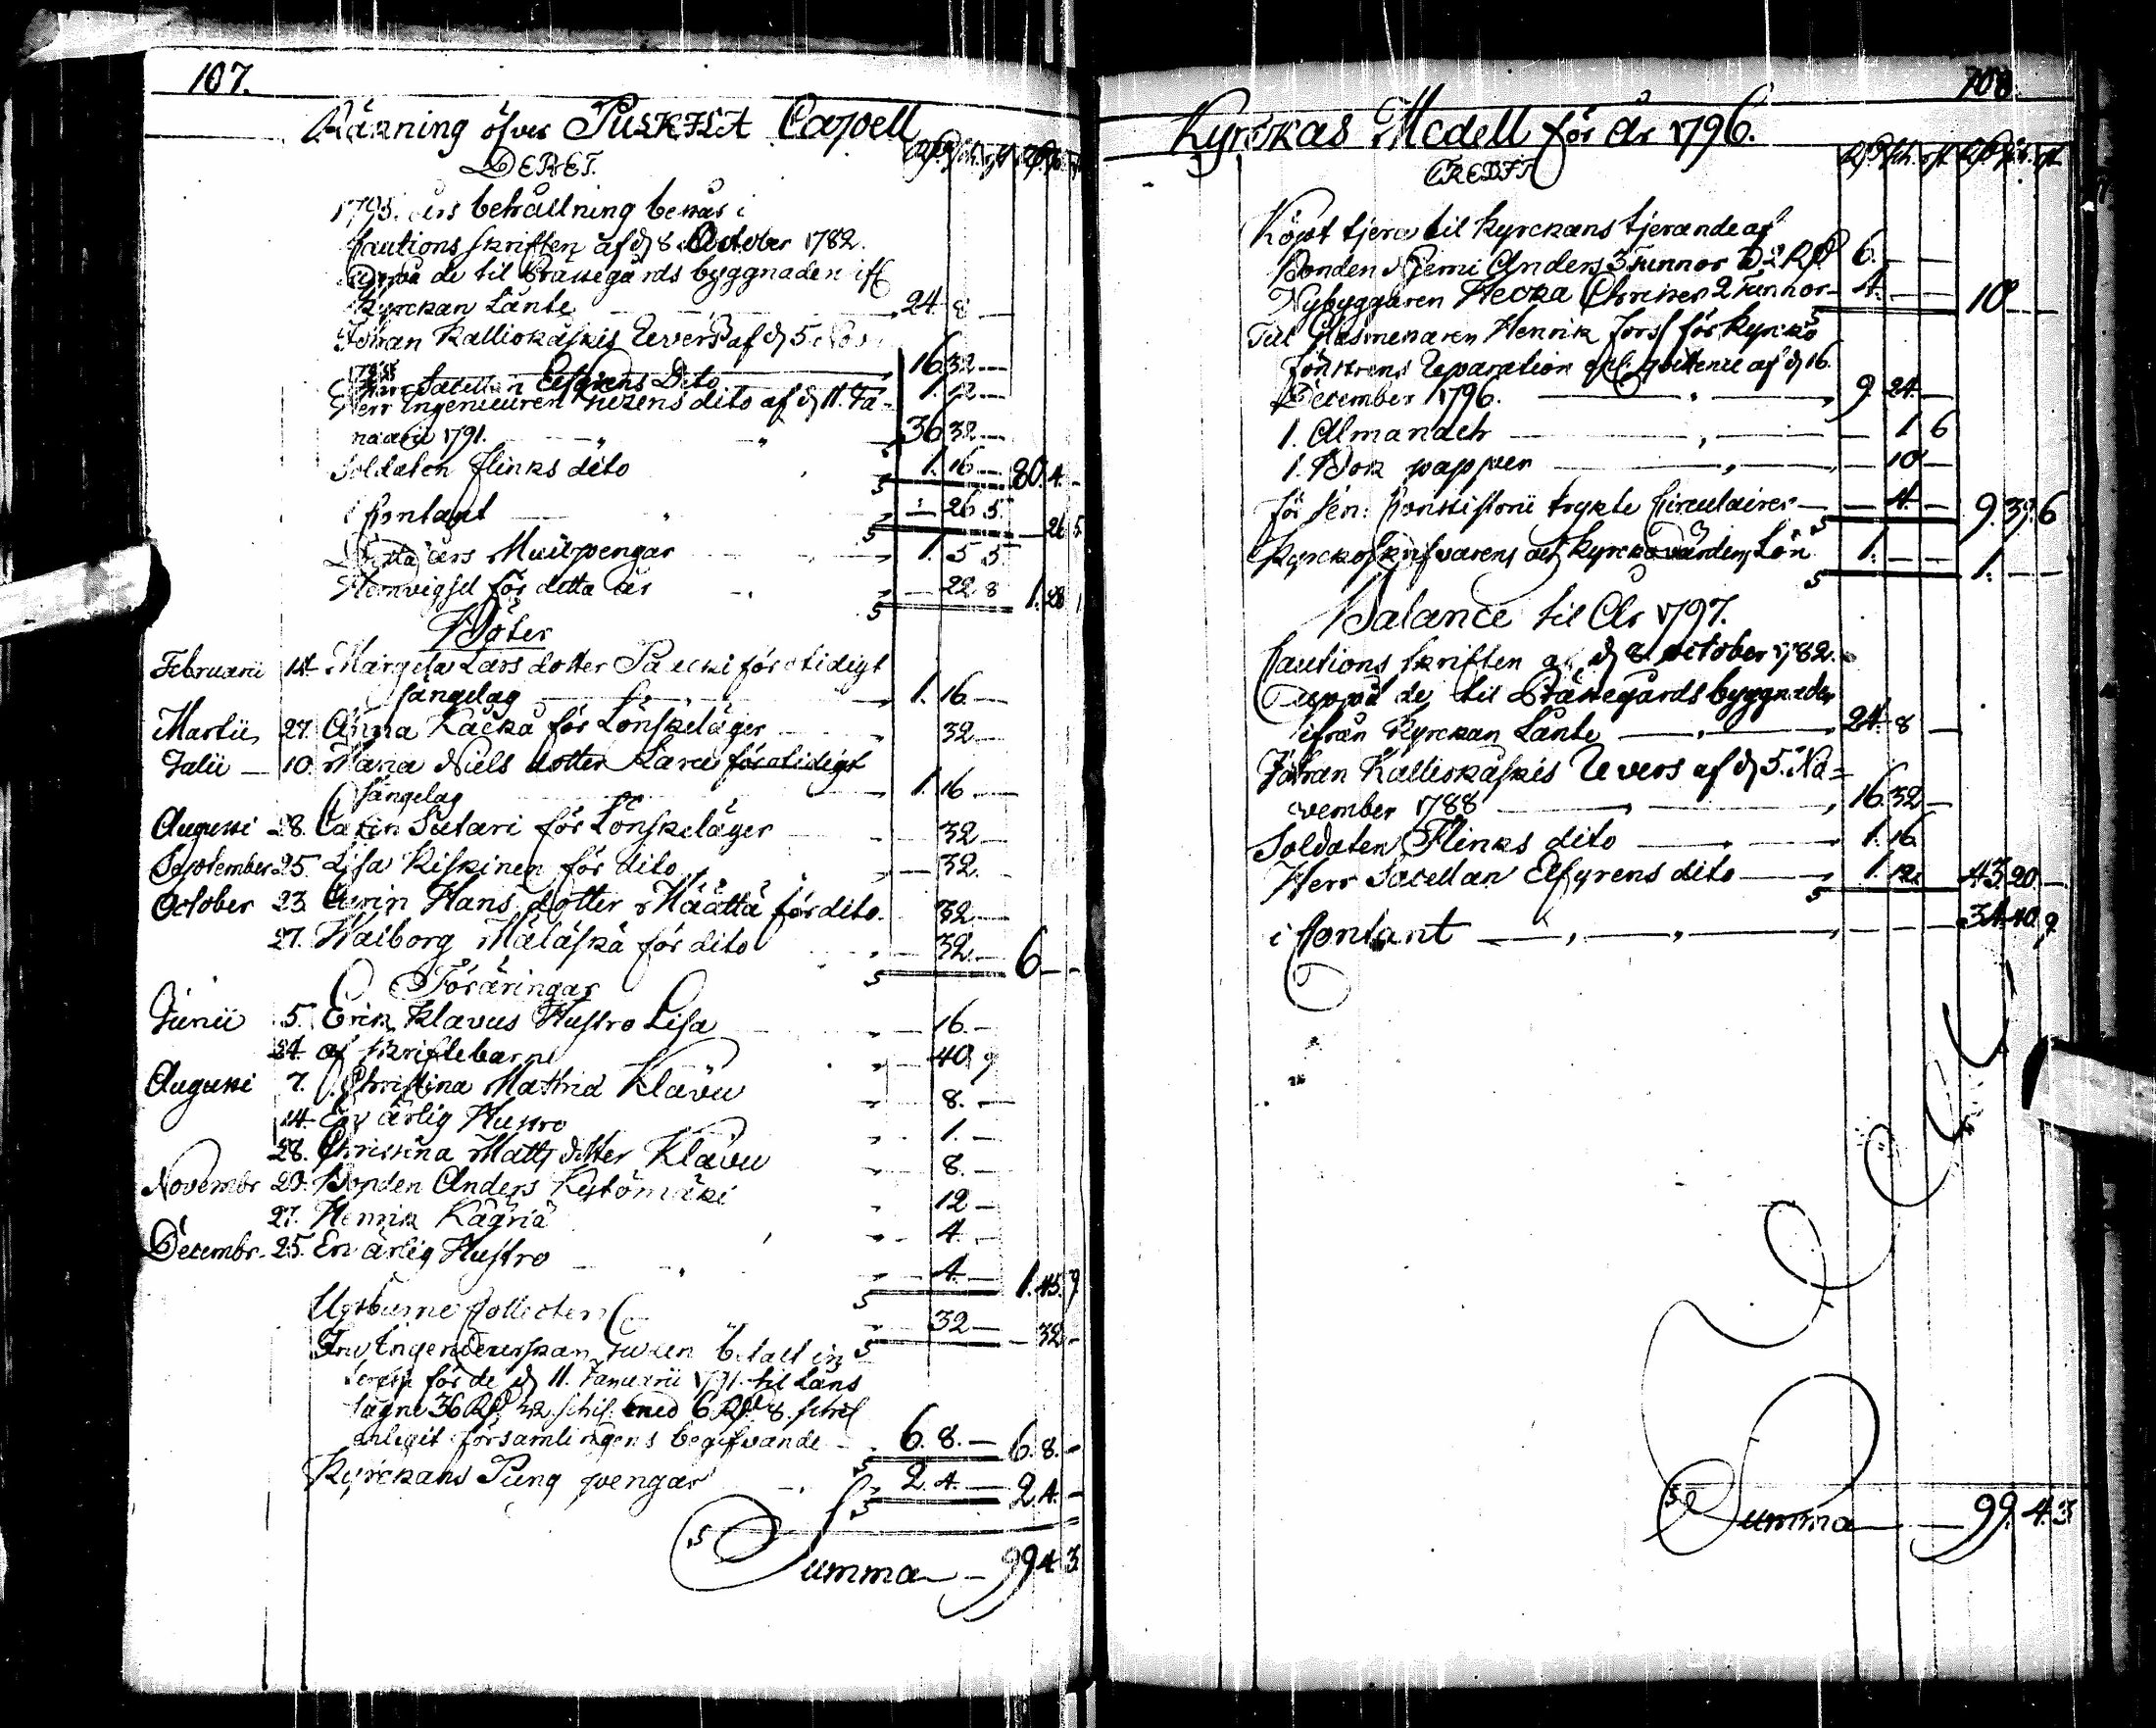 107.
Räkning öfver PULKILA Capell
DEBET.
1795. års behållning består i
Cautions skriften af d 8 October 1782.
uppå de til Prästegårds byggnaden ifr
Kyrckan Lånte 24. 8
Johan Kalliokåskis Revers af d 5 Nov
1788 16 32
Herr Sacellan Elfgrens Dito 1. 12
Herr Ingenieuren dito af d 11. Ja-
nuarii 1791. 36 32
Soldaten Flinks dito 1. 16 80. 4.
i Contant 26 5. 26 5
Detta års Mullpengar 1. 5 5
Hemvigsel för detta år 22 8 1. 28 1
Böter
Februarii 14 Margeta Lars dotter för otidigt
sängelag 1. 16
Martii 27. Anna Kacka för Lönskeläger 32
Julii 10. Maria Niels dotter för otidigt
sängelag 1. 16
Augusti 28. Carin Sutari för Lönskeläger 32
September 25. Lisa Kiskinen för dito 32.
October 23. Carin Hans dotter Määttä för dito. 32
27. Walborg Mäläskä för dito 32. 6
Föräringar
Junii 5. Erik Klavus Hustro Lisa 16.
24. af skriftebarn 40 9
Augusti 7. Christina Matts Klavu 8.
14 En ärlig Hustro 1.
28. Christina Matts dotter Klavu 8.
Novembr 20. Bonden Anders Kestömäki 12
27. Henrik Kägriä 4.
Decembr. 25. En ärlig Hustro 4. 1. 45. 9
Ugsburne Collecten 32 32
Fru Ingenieurskan betalt in-
för de d 11. Januarii 1791. til Låns
tagne 36 Rd 32. schil. med 6 Rd 8. schil
enligit församlingens begifvande 6. 8. 6. 8.
Kyrckans Pung pengar 2. 4. 2. 4.
Summa 99 4 3.
108.
Kyrckas Medell för År 1796.
CREDIT
Köpt tjera til Kyrckans tjerande af
Bonden Niemi Anders 3 tunnor 2 Rd 6.
Nybyggaren Hecka 2 tunnor 4. 10
Till Glasmestaren Henrik Fors för Kyrcko
fönstrens Reparation qvittence af d 16.
December 1796. 9. 24.
1. Almanach 1 6
1. Bok papper 10
för Ven: Consistorii trykte Circulairer 4. 9. 39. 6
Kyrckoskrifvarens och Kyrckovärdens Lön 1. 1.
Balance til År 1797.
Cautions skriften af d 8. October 1782.
uppå de til Prästegårds byggnaden
ifrån Kyrckan Lånte 24. 8
Johan Kalliokåskis Revers af d 5. No=
vember 1788 16. 32
Soldaten Flinks dito 1. 16
Herr Sacellan Elfgrens dito 1. 12. 43. 20.
i Contant 34 40. 9.
Summa 99. 4. 3.